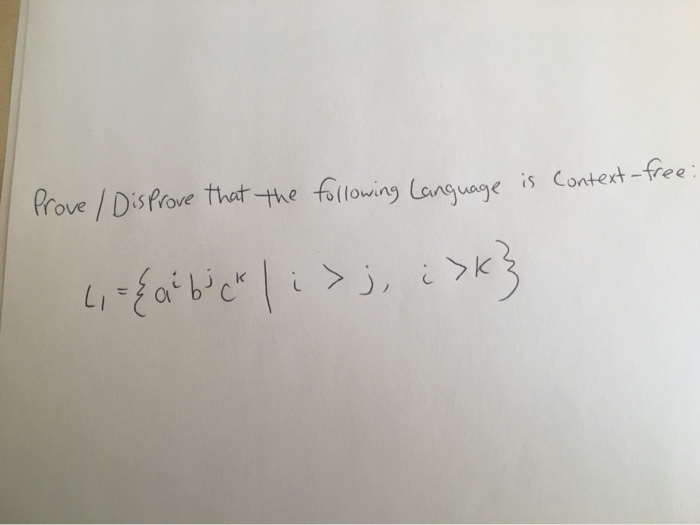 Prove / Disprove that the following Language is Context-free:
L₁ = {aⁱbʲcᵏ | i > j, i > k}